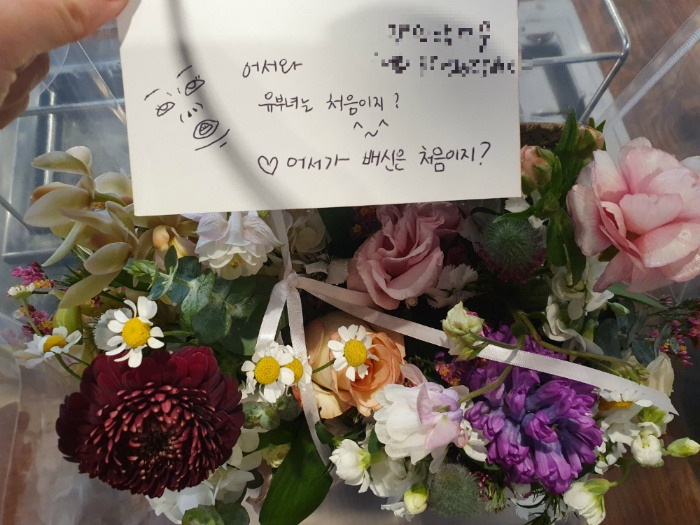 어서와
유부녀는 처음이지?
^~^
♡ 어서가 배신은 처음이지?